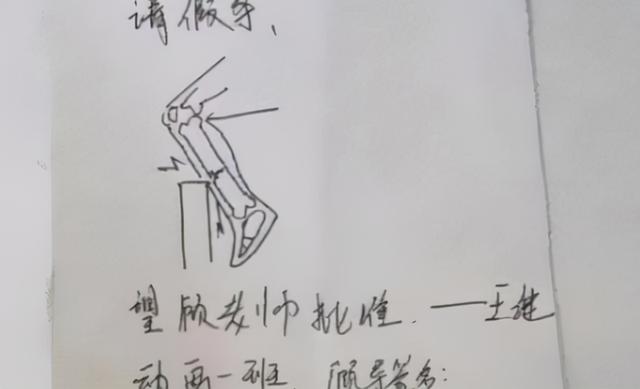 请假条、
望顾老师批准. ——王继
动画一班 顾导签名: